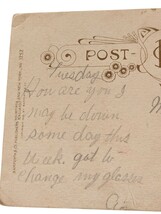 POST
Tuesday
How are you I
may be down
some day this
week. got to
change my glasses